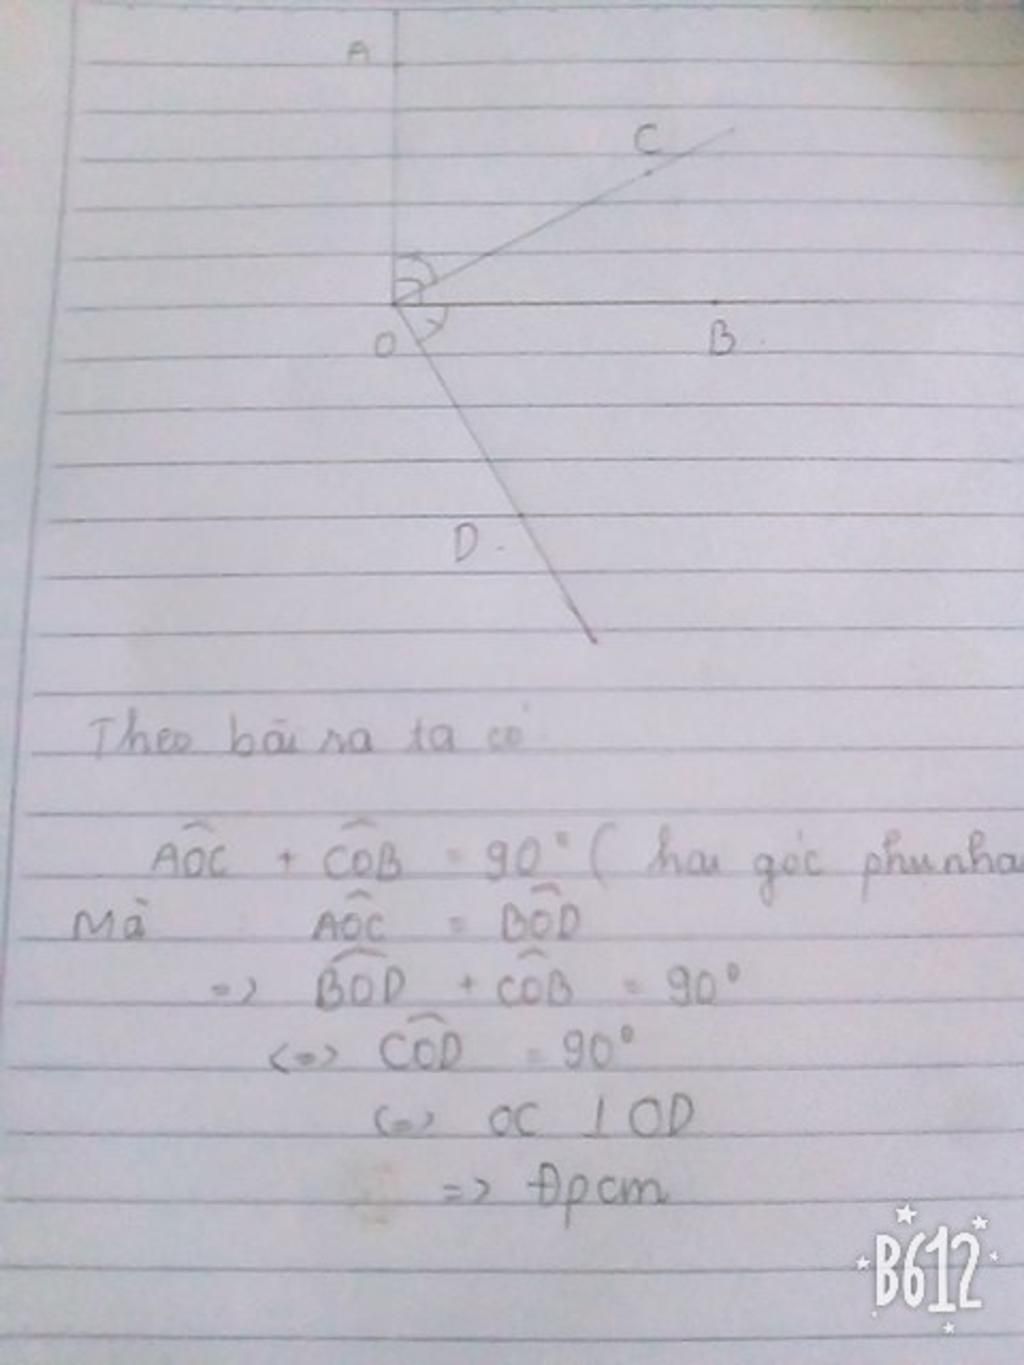 A
C
O
B
D
Theo bài ra ta có
AOC + COB = 90° ( hai góc phụ nha
Mà AOC = BOD
=> BOD + COB = 90°
<=> COD = 90°
<=> OC ⊥ OD
=> Đpcm
B612